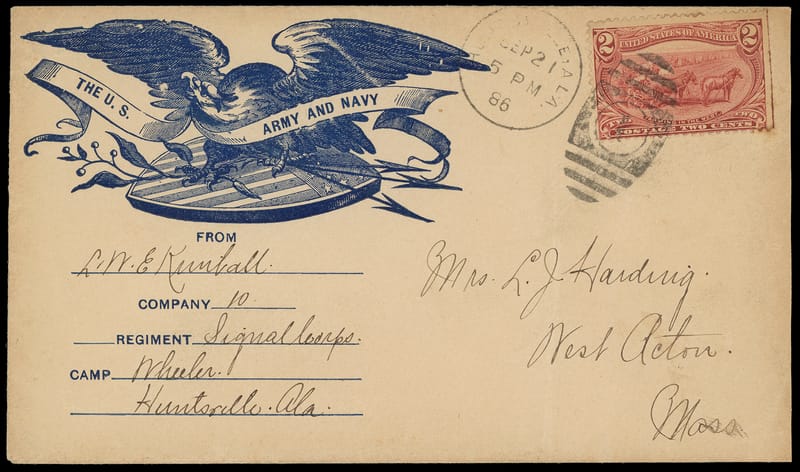 THE U.S.
ARMY AND NAVY
SEP 21
5 PM
86
ALA
2 2
UNITED STATES OF AMERICA
POSTAGE TWO CENTS
FROM
L. W. E Kimball.
COMPANY 10
REGIMENT Signal Corps.
CAMP Wheeler.
Huntsville. Ala.
Mrs. L. J. Harding.
West Acton.
Mass.